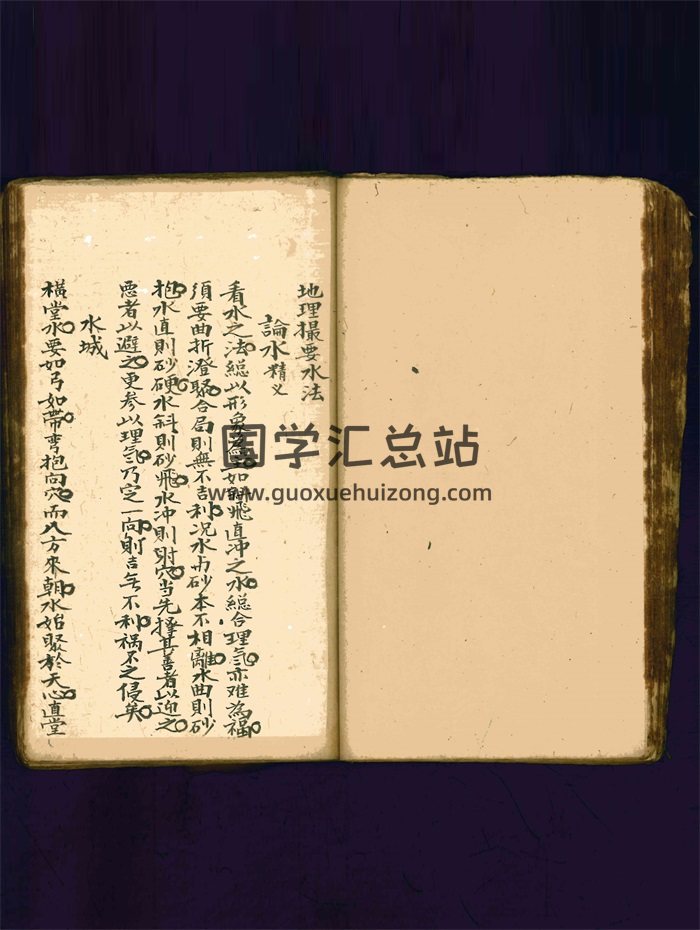 地理撮要水法
論水精义
看水之法。総以形象如飛直冲之水。総合理氣。亦难為福。
須要曲折澄聚。合局則無不吉利。况水与砂本不相離。水曲則砂
抱。水直則砂硬。水斜則砂飛。水冲則射穴。当先擇其善者以迎之。
恶者以避之。更参以理气。乃定一向。則吉無不利。祸不之侵矣。
水城
橫堂水。要如弓如帶。弯抱向穴。而八方來朝水。始聚於天心。直堂
国学汇总站
www.guoxuehuizong.com